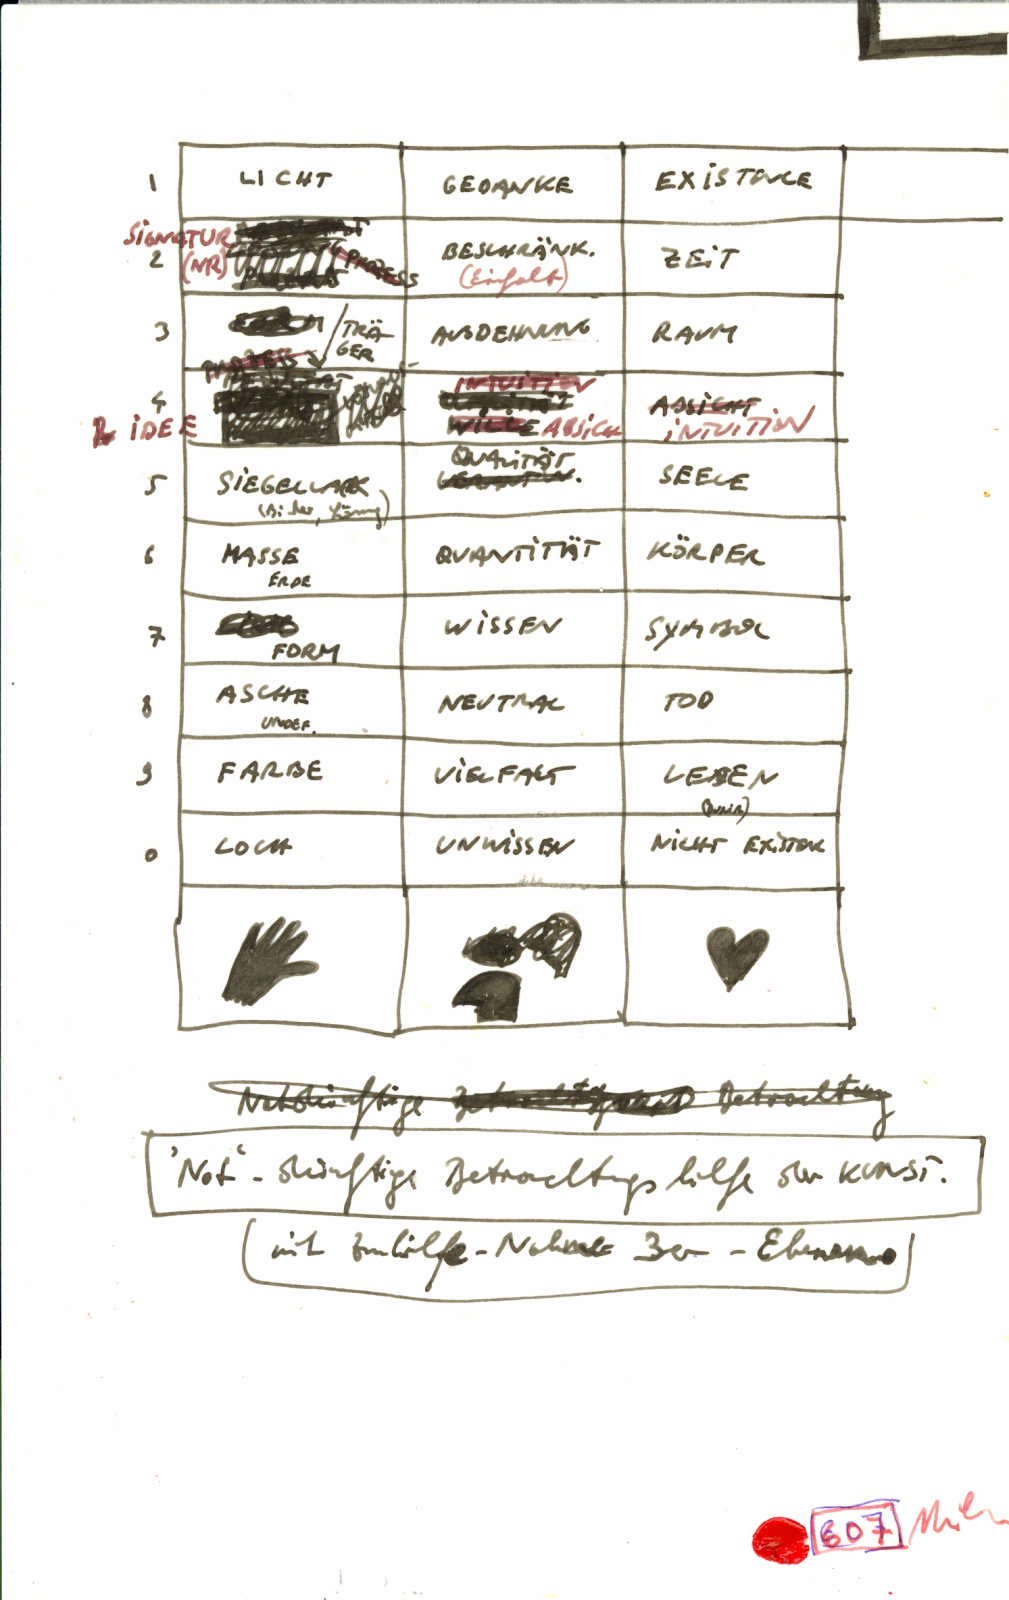 1 LICHT GEDANKE EXISTENCE
SIGNATUR
2 (NR) PROZESS BESCHRÄNK. ZEIT
(Einfalt)
3 FORM TRÄ- AUSDEHNUNG RAUM
GER
4 INTUITION ABSICHT
IDEE WILLE ABSICH INTUITION
QUALITÄT
5 SIEGELLACK SEELE
6 MASSE QUANTITÄT KÖRPER
ERDE
7 WISSEN SYMBOL
FORM
8 ASCHE NEUTRAL TOD
UNDEF.
9 FARBE VIELFALT LEBEN
0 LOCH UNWISSEN NICHT EXISTENZ
Notdürftige Betrachtung
'Not'-dürftige Betrachtungshilfe der KUNST.
mit Zuhilfe-Nahme 3er-Ebenen
607